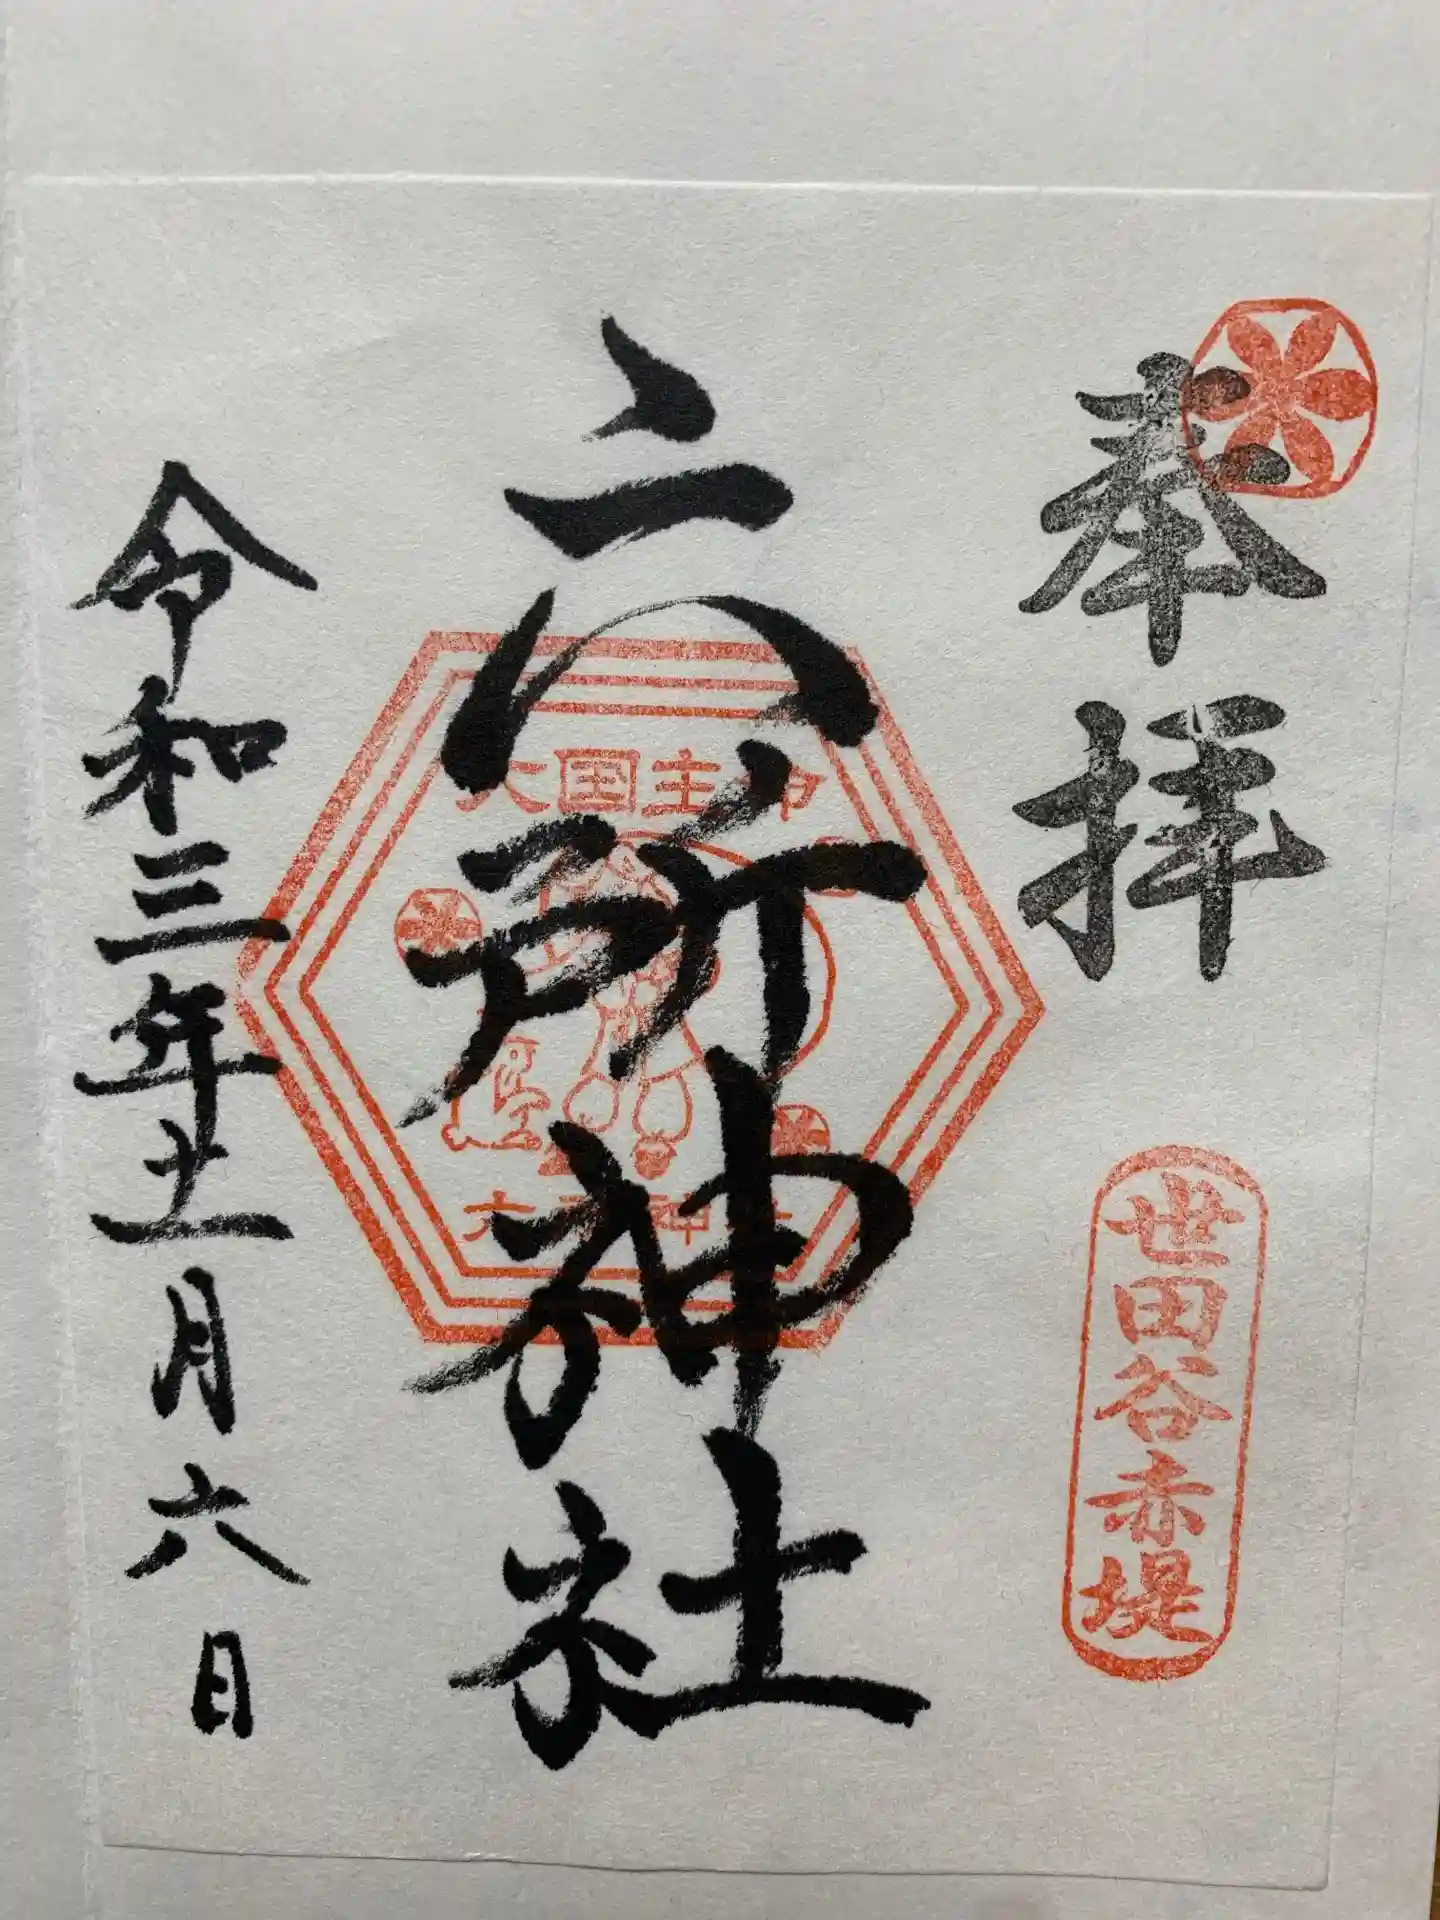 奉拝
世田谷赤堤
六所神社
大国主命
六所神社
令和三年十一月六日